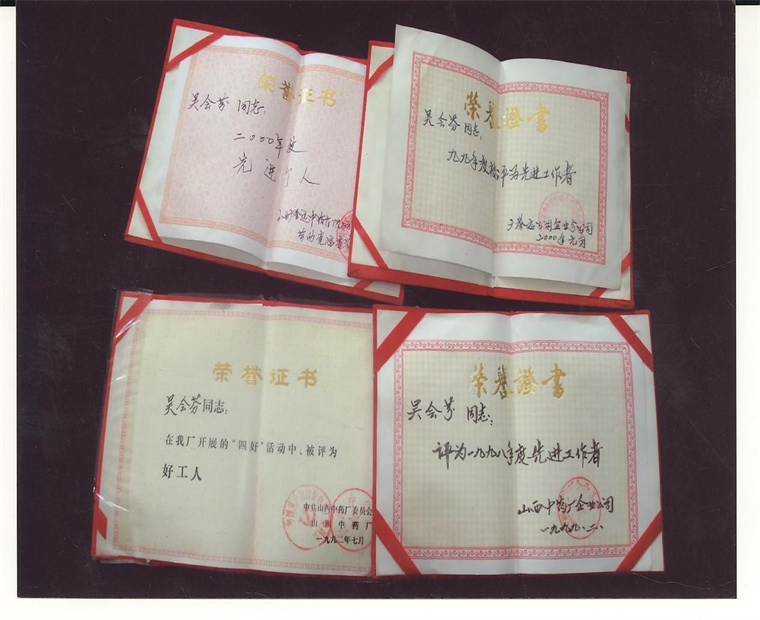 荣誉证书
吴会芬 同志:
二〇〇〇年度
先进工人
荣誉證書
吴会芬 同志:
九九年度被评为先进工作者
二〇〇〇年元月
荣誉证书
吴会芬同志:
在我厂开展的“四好”活动中、被评为
好工人
中共山西中药厂委员会
山西中药厂
一九九二年七月
荣誉證書
吴会芬 同志:
评为一九九八年度先进工作者
山西中药厂企业公司
一九九九.二.